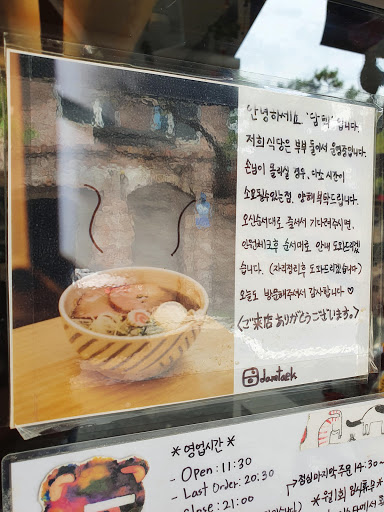 안녕하세요 "담택"입니다.
저희 식당은 부부 둘이서 운영중입니다.
손님이 몰리실 경우, 다소 시간이
소요될수있는점, 양해부탁드립니다.
오신순서대로 줄서서 기다려주시면,
인원체크후 순서대로 안내 도와드리겠
습니다. (자리정리후 도와드리겠습니다)
오늘도 방문해주셔서 감사합니다 ♡
<ご来店ありがとうございます。>
damtaek
*영업시간*
- Open: 11:30
- Last Order: 20:30
- Close: 21:00
점심마지막주문 14:30